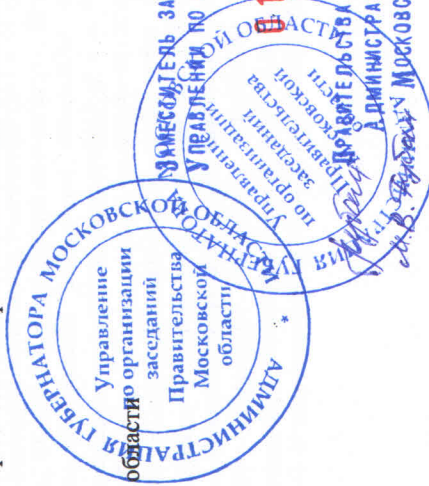 АДМИНИСТРАЦИЯ ГУБЕРНАТОРА МОСКОВСКОЙ ОБЛАСТИ *
Управление
по организации
заседаний
Правительства
Московской
области
области
ГУБЕРНАТОРА МОСКОВСКОЙ ОБЛАСТИ
Управление
по организации
заседаний
Правительства
Московской
области
ЗАМЕСТИТЕЛЬ ЗА
УПРАВЛЕНИЯ ПО
ПРАВИТЕЛЬСТВА
АДМИНИСТРА
МОСКОВС